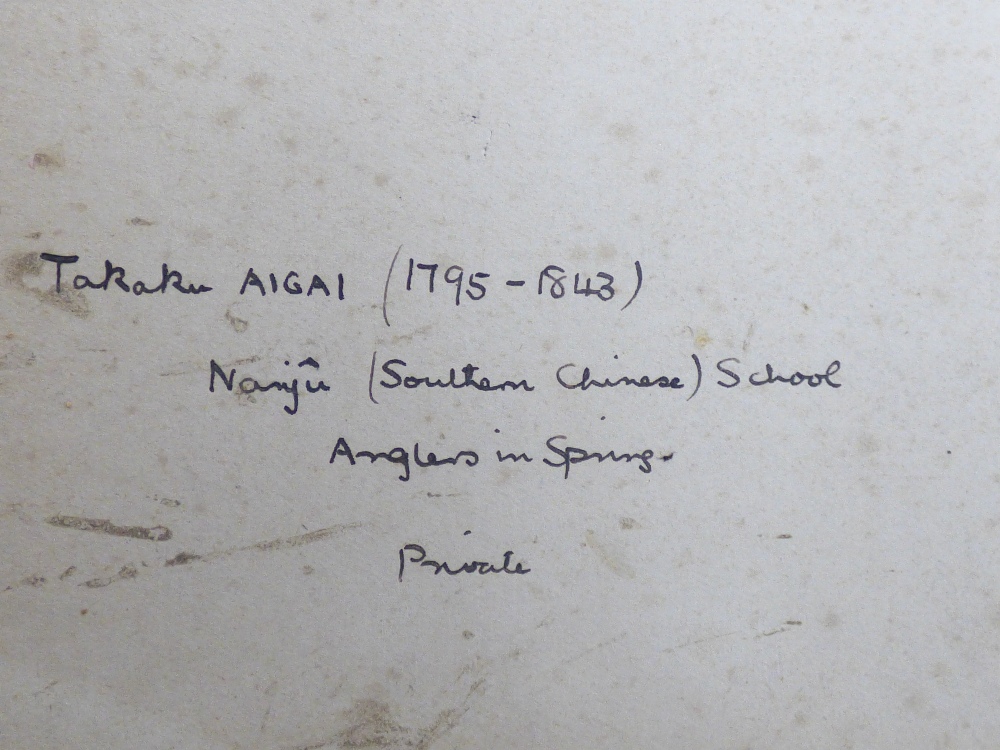 Takaku AIGAI (1795 - 1843)
Nanjû (Southern Chinese) School
Anglers in Spring.
Private